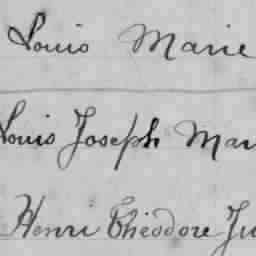 Louis Marie
Louis Joseph Mar
Henri Théodore Ju